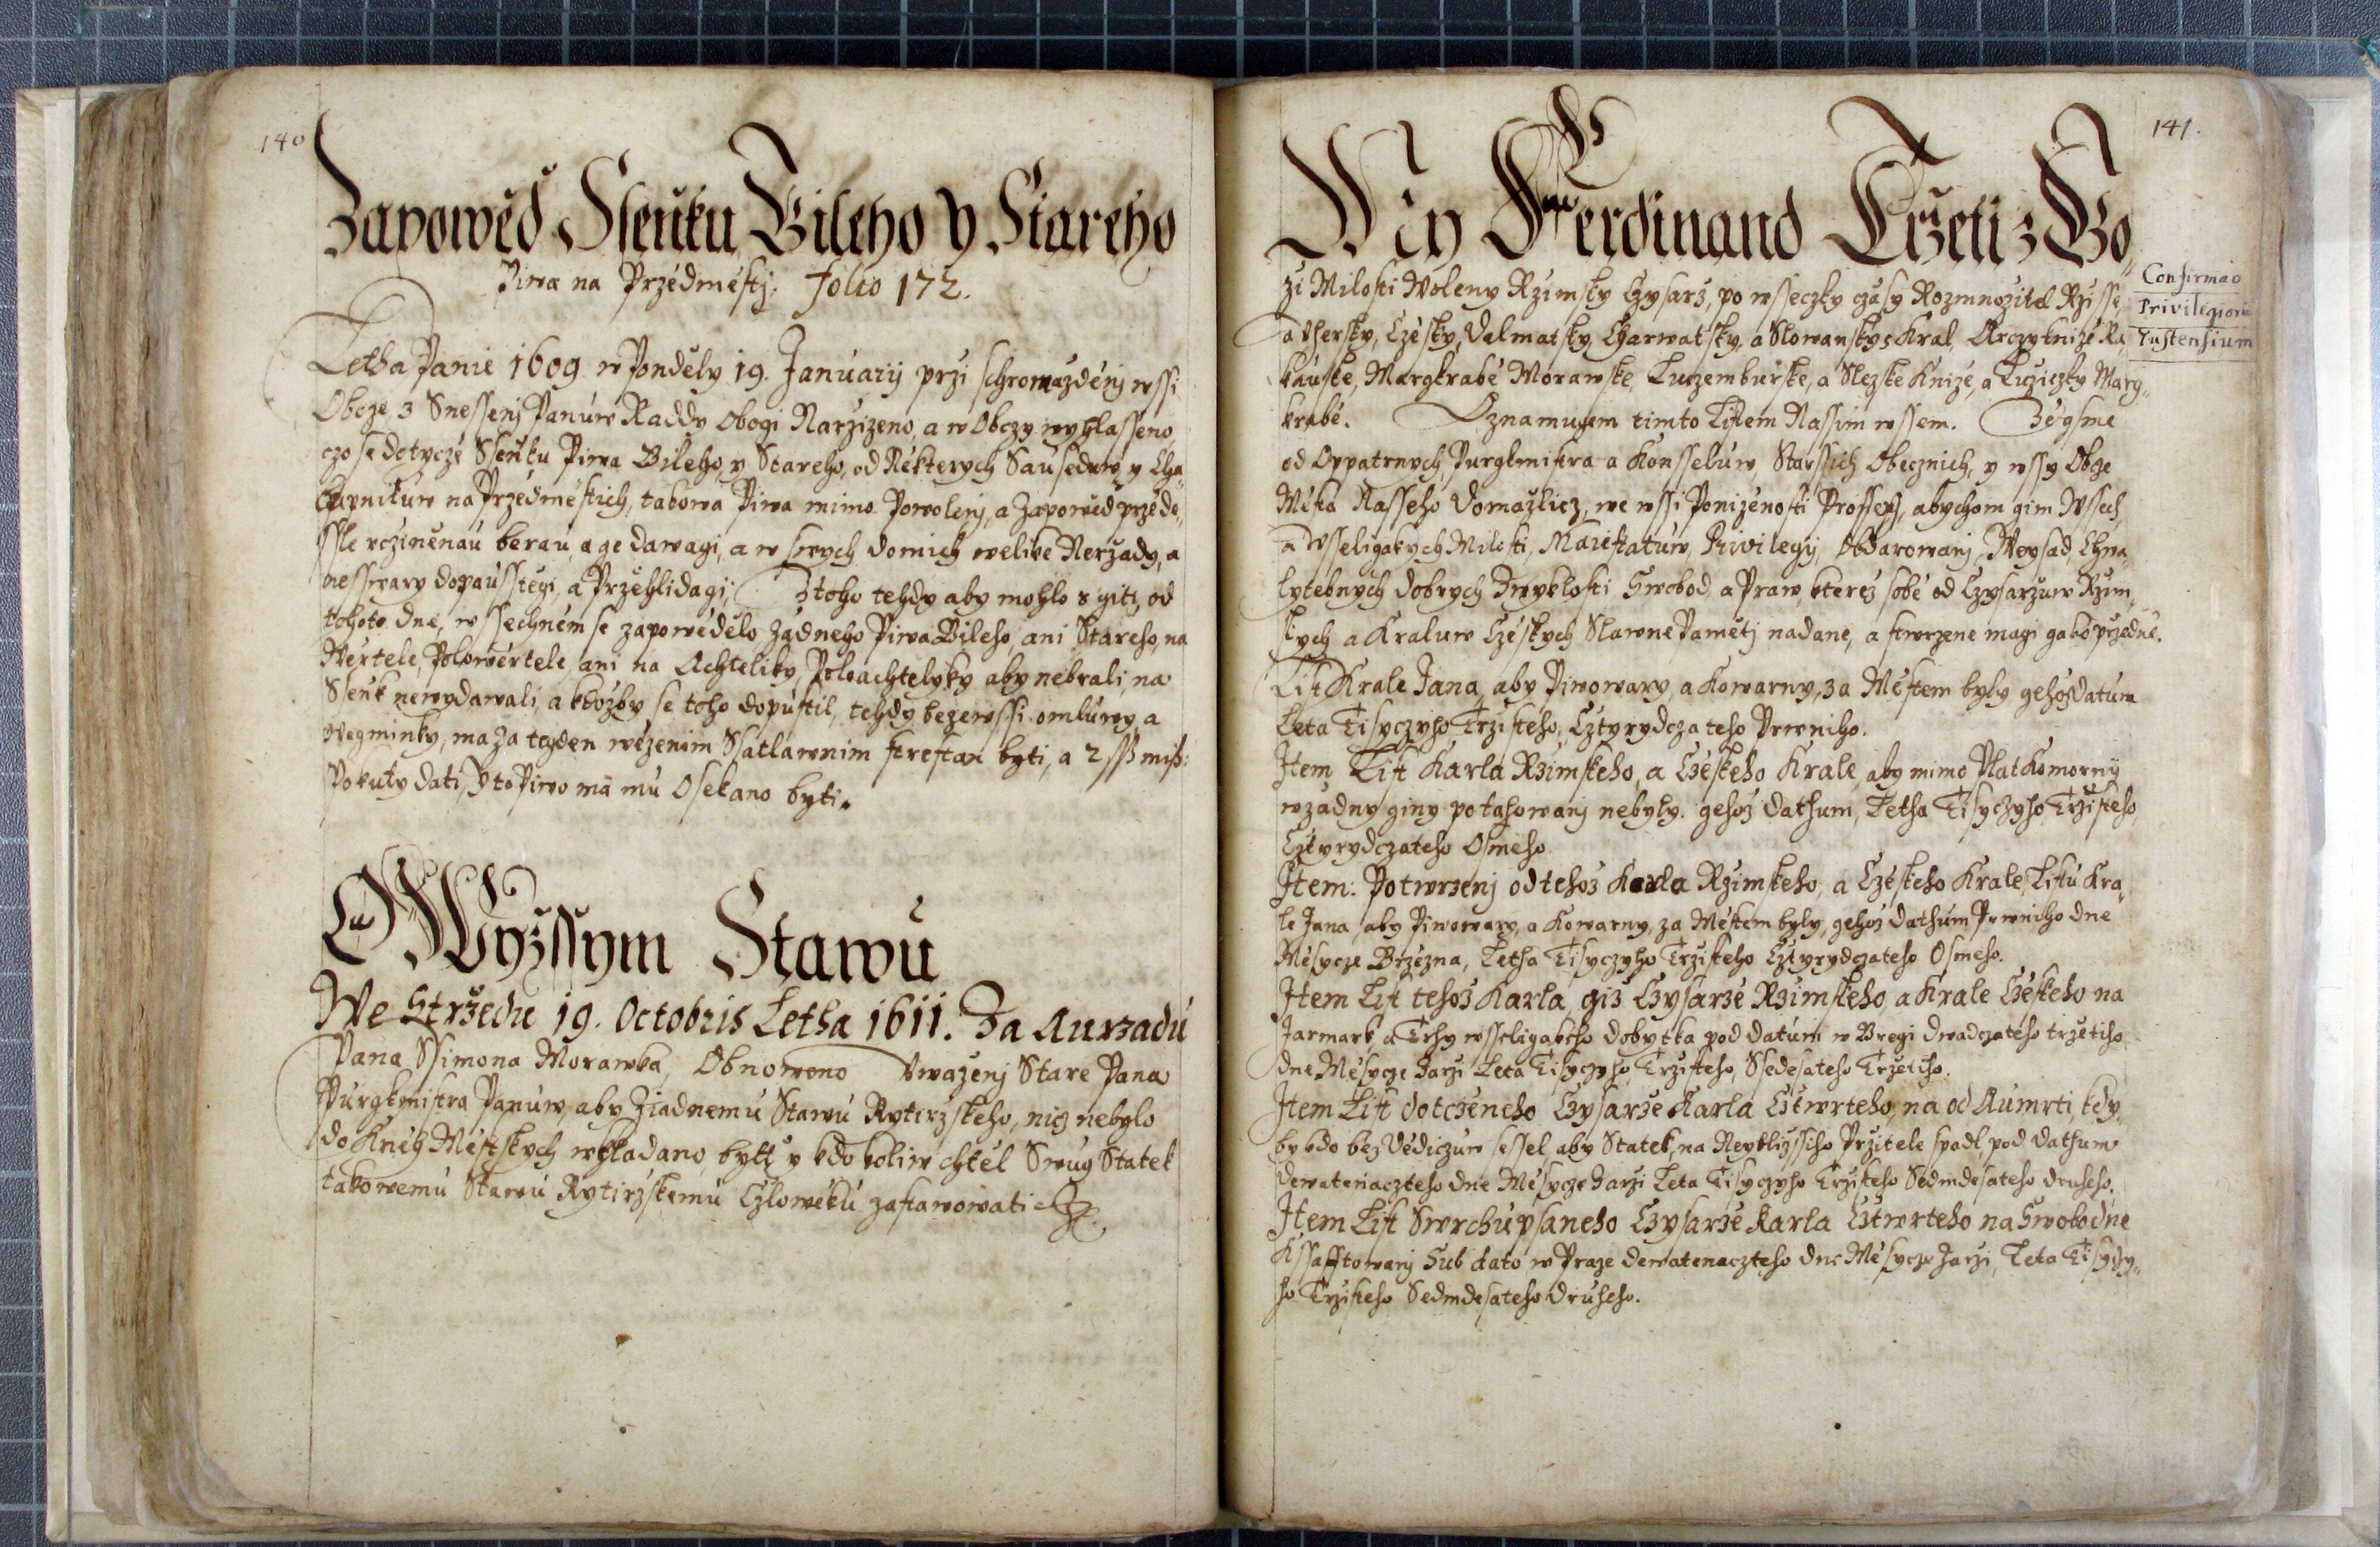 140
Zapowěd Sseňku Bileho y Stareho
Piwa na Przedměstj. folio 172.
Letha Panie 1609 w Ponděly 19. Januarij przi schromazděnj wssi
Obcze z Snessenj Panuw Raddy Obogi Narzizeno, a w Obczy wyhlasseno,
czo se dotycze Ssenku Piwa Bileho, y Stareho, od Některych Sausedůw, y Cha„
lupnikuw na Przedměstich, takowa Piwa mimo Powolenj, a Zapowěd przede„
ssle vcziněnau berau, a ge dawagi, a w swych domich welike Nerzady, a
nesswary dopausstěgi, a Przehlidagi, Z toho tehdy aby mohlo s giti, od
tohoto dne, w ssechněm se zapowědělo žadneho Piwa Bileho, ani Stareho, na
Wertele, Polowertele, ani na Achteliky, Poloachtelyky aby nebrali, na
Ssenk newydawali, a kdožby se toho dopustil, tehdy beze wssi omluwy a
Wegminky, ma za tegden wězenim Ssatlawnim strestan byti, a 2 ssß miß:
Pokuty dati, y to Piwo ma mu Osekano byti.
O Wyžssym Stawu
We Strzedu 19. Octobris Letha 1611. Za Aurzadu
Pana Ssimona Morawka, Obnoweno Vwaženj Stare Pana
Purgkmistra Panuw, aby Ziadnemu Stawu Rytirzskeho, nicz nebylo
do Kněh Městskych wkladano, bytť y kdo koliw chtěl Swug Statek
takowemu Stawu Rytirzskemu Czlowěku zastawowati
141.
My Ferdinand Trzeti z Bo„
zi Milosti Woleny Rzimsky Czysarz, po wsseczky czasy Rozmnozitel Rzisse
a Vhersky, Czesky, Dalmatsky, Charwatsky, a Slowansky &c Kral, Arczyknize Ra„
kauske, Margkrabě Morawske, Luczemburske, a Slezske Knize, a Luziczky Marg„
krabě. Oznamugem timto Listem Nassim wssem. Ze gsme
od Oppatrnych Purgkmistra a Konsseluw, Starssich Obecznich, y wssy Obcze
Města Nasseho Domazlicz, we wssi Poniženosti Prosseni, abychom gim Wssech
a Wsseligakych Milosti, Maiestatuw, Privilegij, Obdarowanj, Weysad, Chwa„
lytebnych dobrych Zwyklosti Swobod, a Praw, kterez sobě od Czysarzuw Rzim„
skych a Kraluw Czeskych Slawne Pamětj nadane, a stwrzene magi gako przedně.
List Krale Jana, aby Piwowary, a Kowarny, za Městem byly gehoz datum
Leta Tisyczyho Trzisteho, Cztyrydczateho Prwniho.
Item List Karla Rzimskeho, a Czeskeho Krale, aby mimo Plat Komorny
w zadny giny potahowanj nebyly. gehoz dathum, Letha Tisyczyho Trzisteho
Cztyrydczateho Osmeho.
Item: Potwrzenj od tehoz Karla Rzimskeho, a Czeskeho Krale, Listu Kra„
le Jana, aby Piwowary, a Kowarny, za Městem byly, gehoz dathum Prwniho dne
Měsycze Brzezna, Letha Tisyczyho Trzisteho Cztyrydczateho Osmeho.
Item List tehoz Karla, giz Czysarze Rzimskeho, a Krale Czeskeho na
Jarmark a Trhy wsseligakeho dobytka pod datum w Bregi dwadczateho trzetiho
dne Měsycze Zarzi Leta Tisyczyho, Trzisteho, Ssedesateho Trzetiho.
Item List dotczeneho Czysarze Karla Cztwrteho, na od Aumrti, kdy„
by kdo bez Dědiczuw sessel, aby Statek, na Neyblizssiho Przitele spadl, pod dathum
dewatenaczteho dne Měsycze Zarzi Leta Tisyczyho Trzisteho Sedmdesateho druheho.
Item List Swrchu psaneho Czysarze Karla Cztwrteho na Swobodne
Kssafftowanj Sub dato w Praze dewatenaczteho dne Měsycze Zarzi, Leta Tisyczy„
ho Trzisteho Sedmdesateho druheho.
Confirmao
Privilegioru
Tustensium